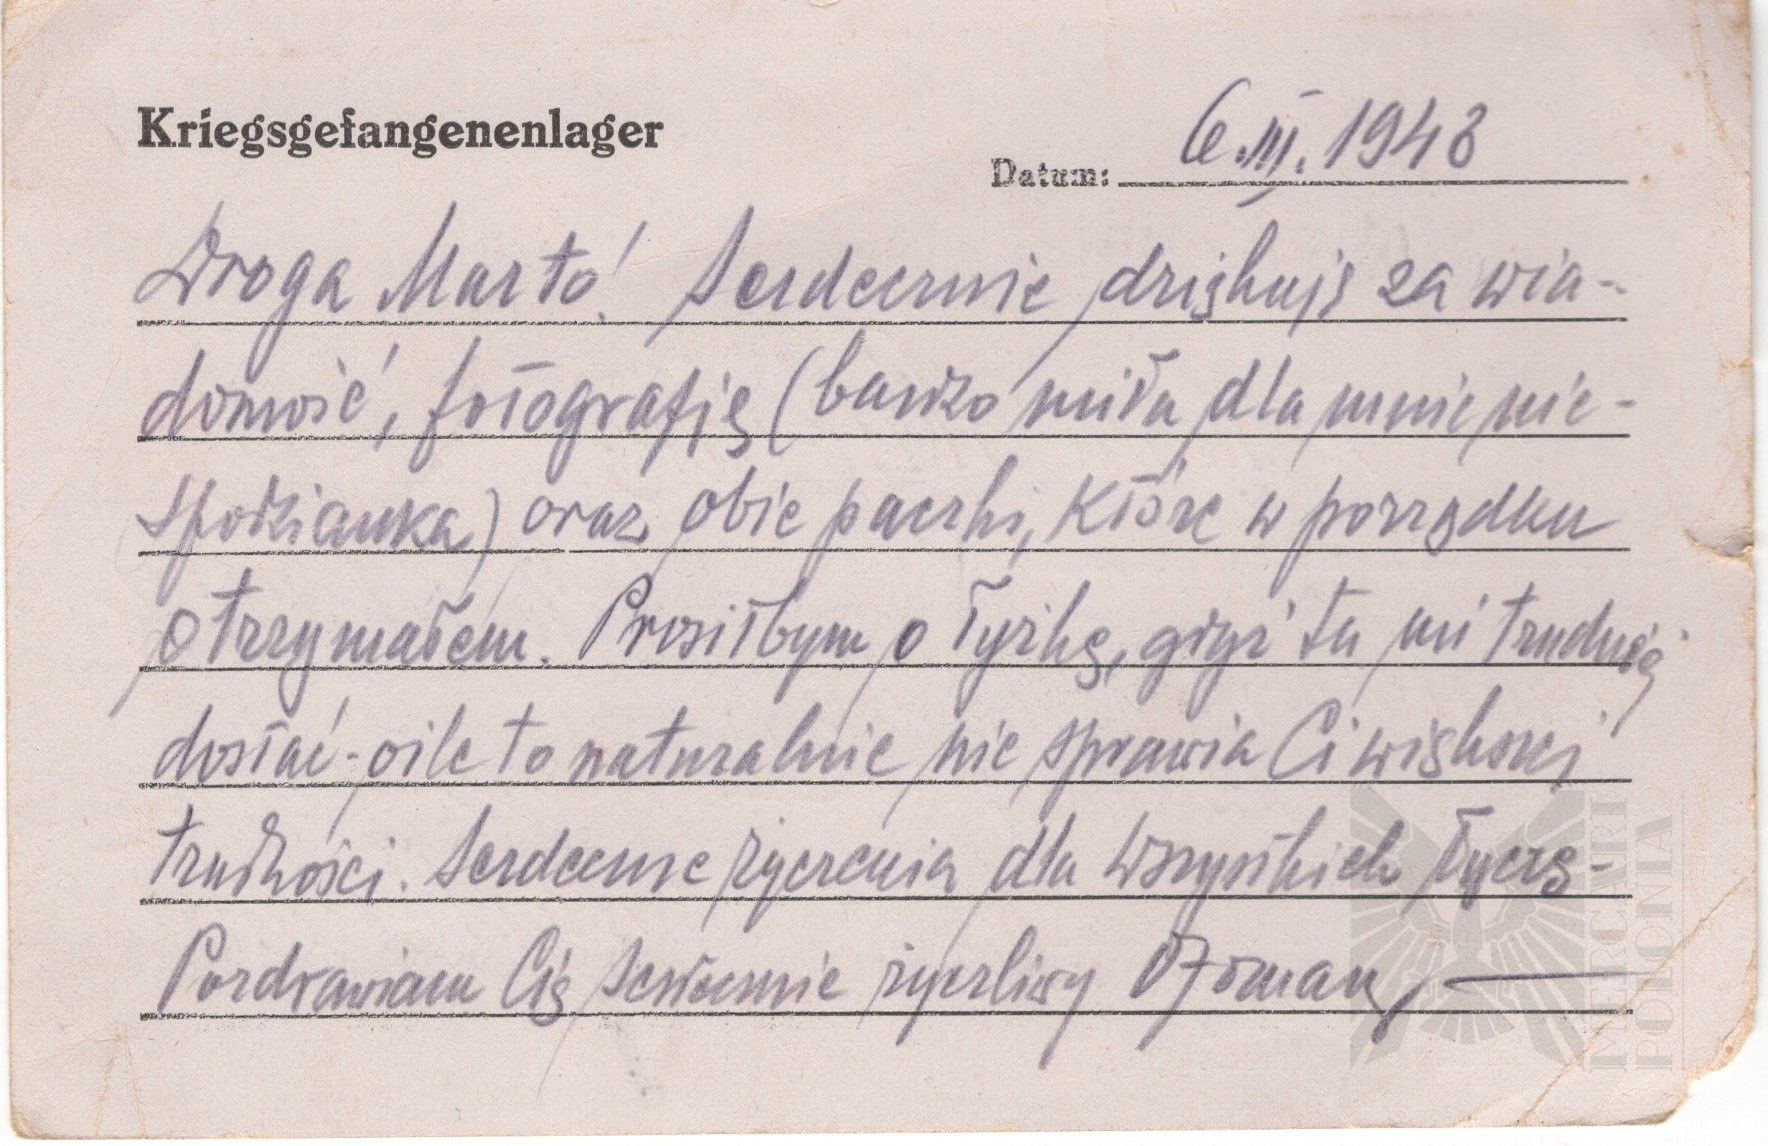 Kriegsgefangenenlager
Datum: 6.III.1943
Droga Marto! Serdecznie dziękuję za wia-
domość, fotografię (bardzo miła dla mnie nie-
spodzianka) oraz obie paczki, które w porządku
otrzymałem. Prosiłbym o łyżkę, gdyż tu mi trudno ją
dostać - o ile to naturalnie nie sprawia Ci większej
trudności. Serdeczne życzenia dla wszystkich łączę-
Pozdrawiam Cię serdecznie życzliwy
MERCARI
POLONIA